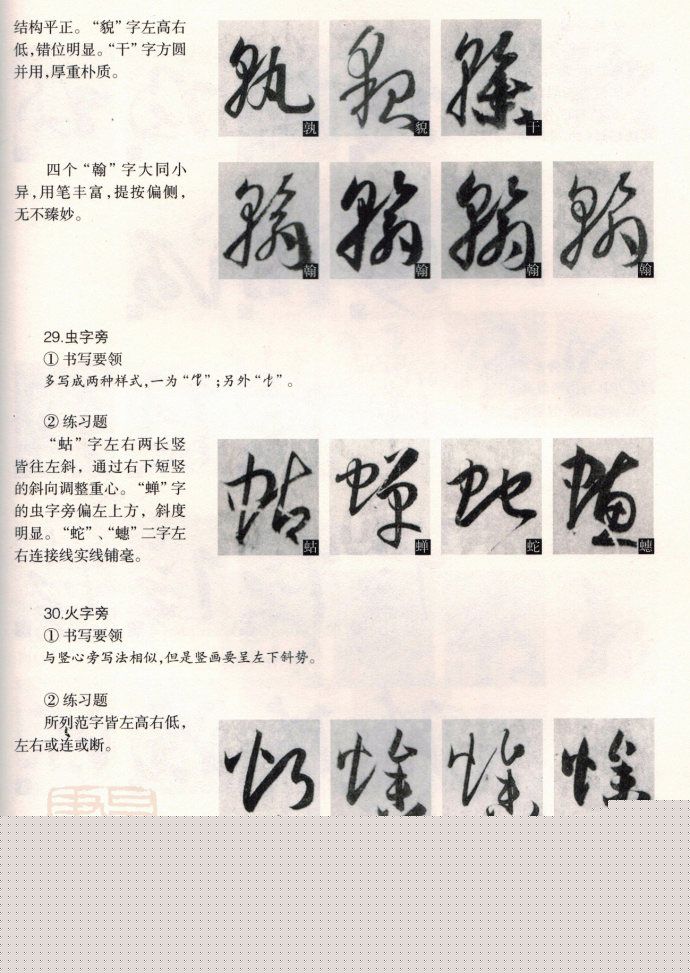 结构平正。“貌”字左高右
低,错位明显。“干”字方圆
并用,厚重朴质。
孰
貌
干
四个“翰”字大同小
异,用笔丰富,提按偏侧,
无不臻妙。
翰
翰
翰
翰
29.虫字旁
① 书写要领
多写成两种样式,一为“”;另外“”。
② 练习题
“蛄”字左右两长竖
皆往左斜,通过右下短竖
的斜向调整重心。“蝉”字
的虫字旁偏左上方,斜度
明显。“蛇”、“蟪”二字左
右连接线实线铺毫。
蛄
蝉
蛇
蟪
30.火字旁
① 书写要领
与竖心旁写法相似,但是竖画要呈左下斜势。
② 练习题
所列范字皆左高右低,
左右或连或断。